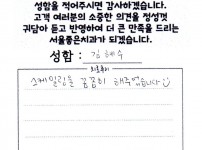 성함을 적어주시면 감사하겠습니다.
고객 여러분의 소중한 의견을 정성껏
귀담아 듣고 반영하여 더 큰 만족을 드리는
서울좋은치과가 되겠습니다.
성함 : 김혜수
스케일링을 꼼꼼히 해주셨습니다